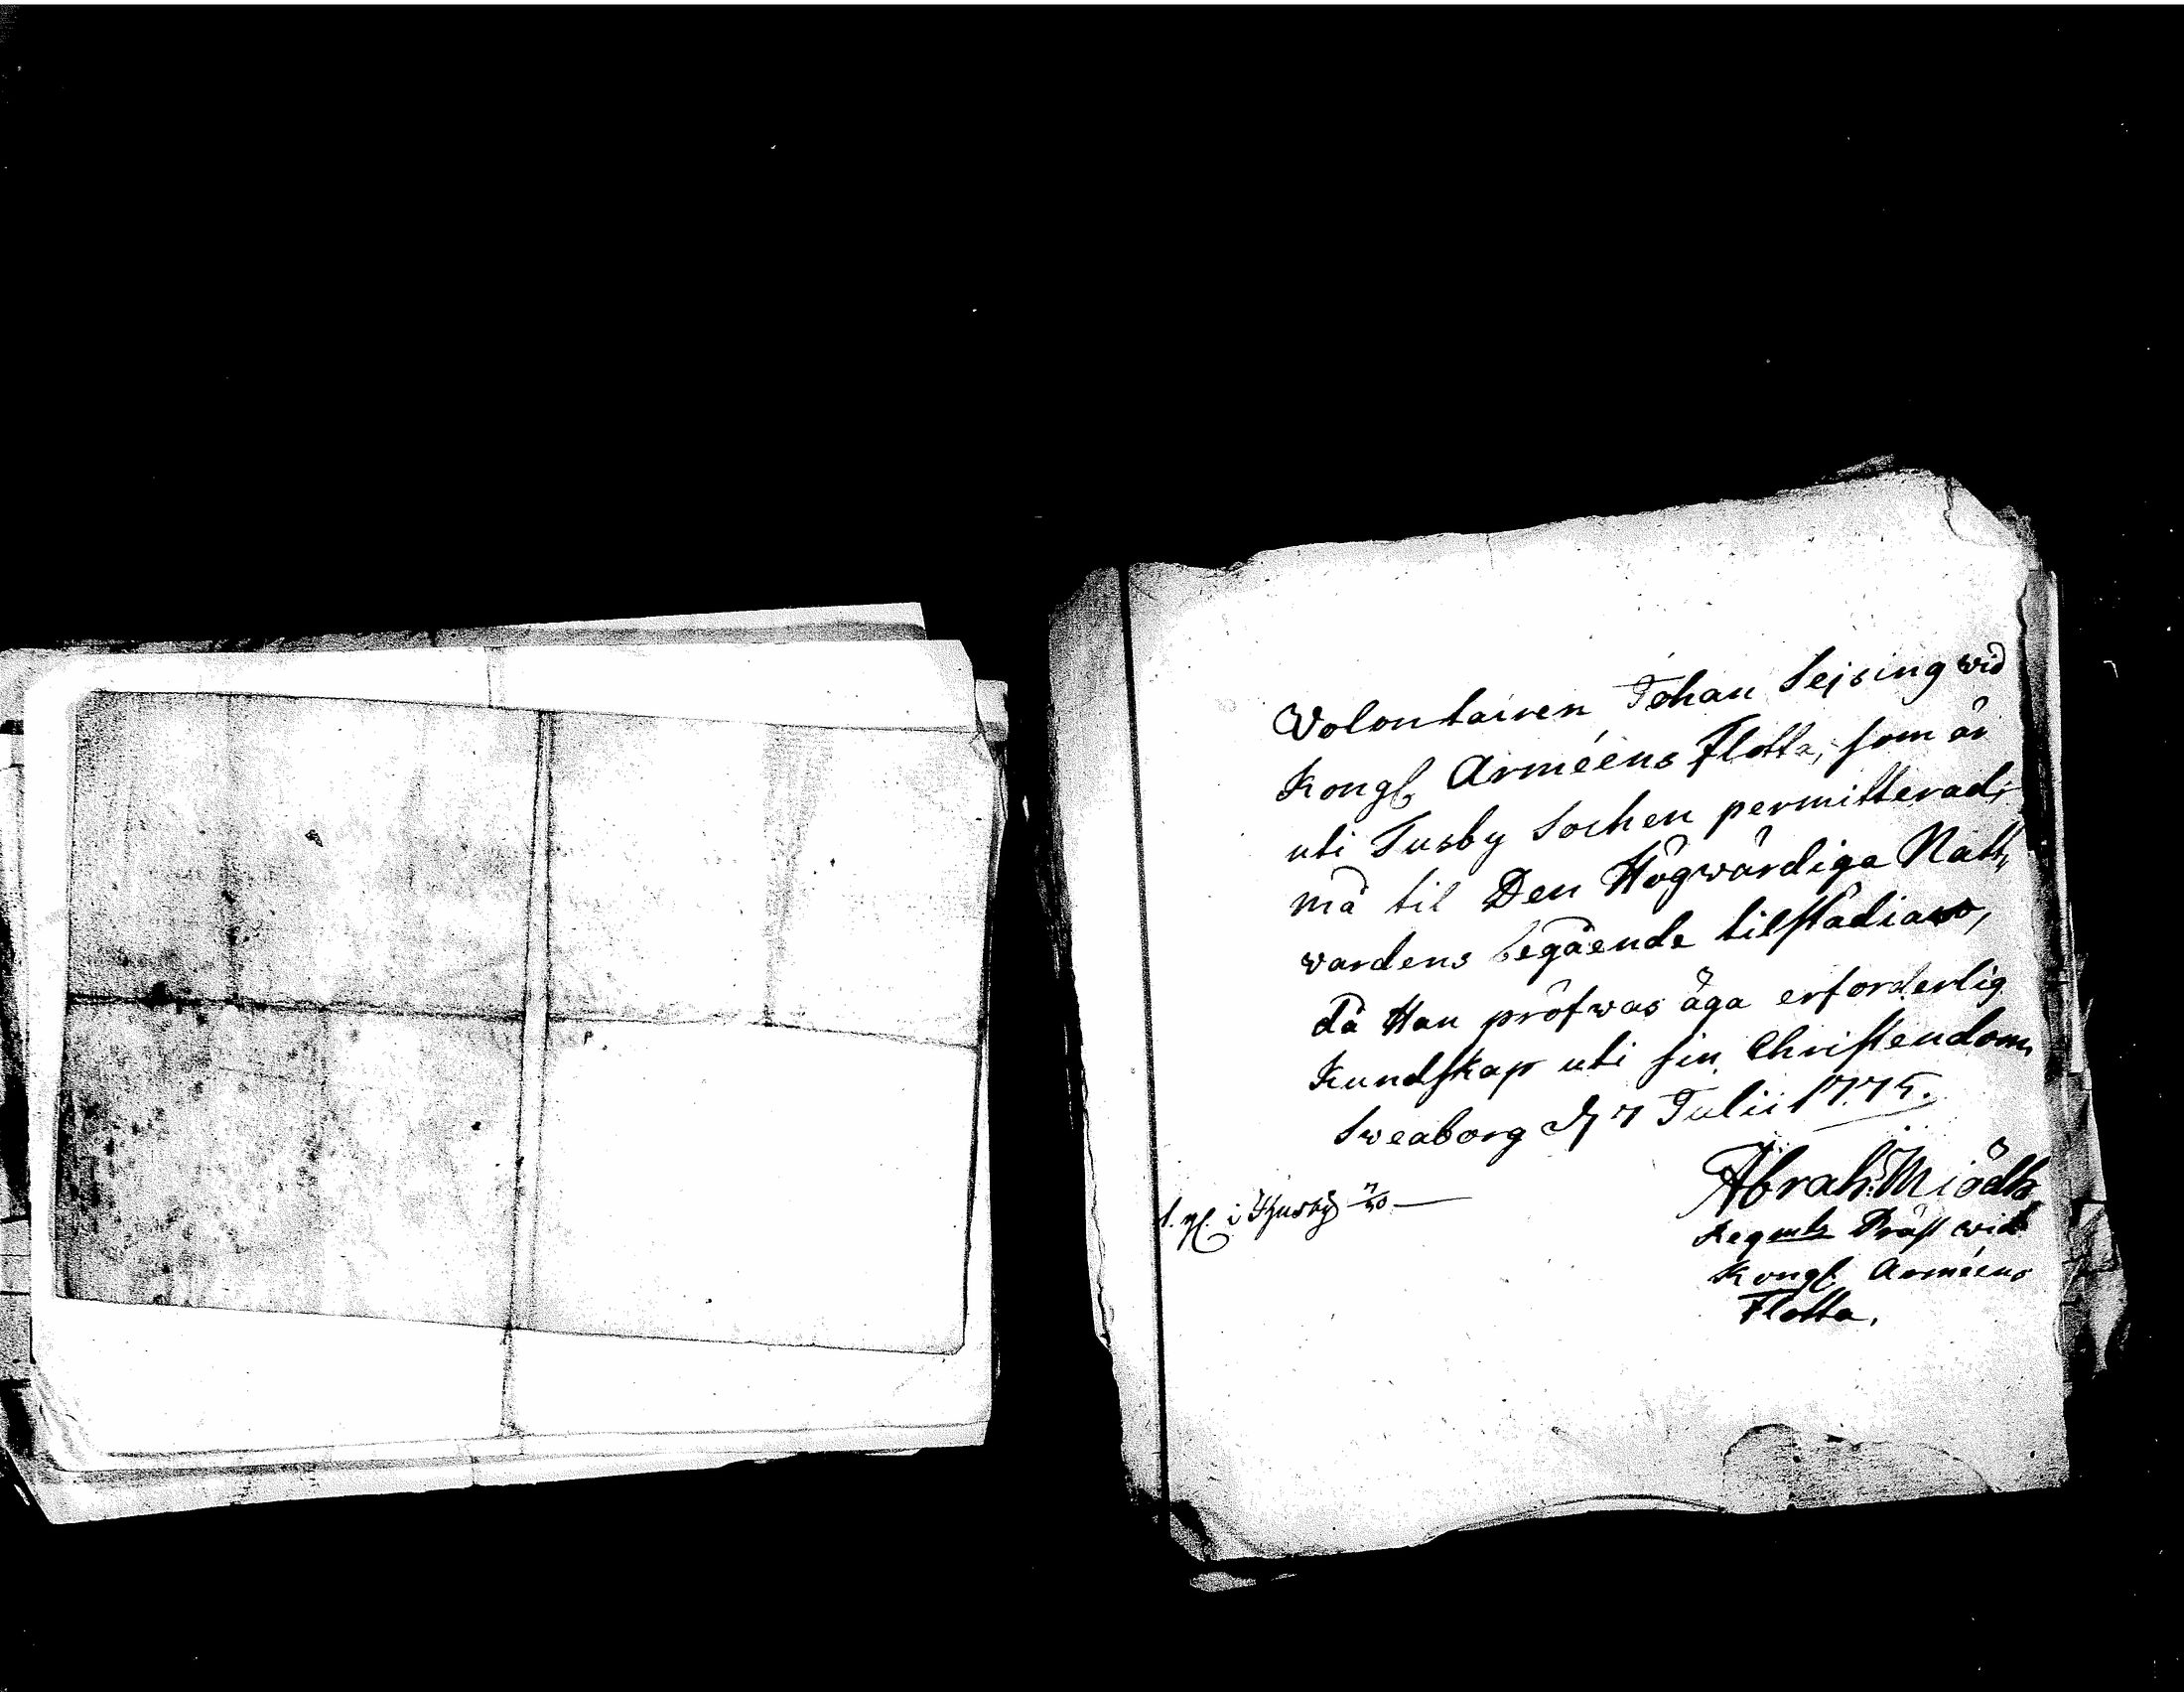 Volontairen Johan Seising wid
Kongl. Arméens Flotta, som är
uti Tusby Sochen permitterad,
må til Den Högwärdiga Natt„
wardens begående tilstädias,
då Han pröfwas äga erforderlig
Kundskap uti sin Christendom,
Sweaborg d 7 Julii 1775.
Abrah: Miödh
Regmts Präst wid
Kongl. Arméens
Flotta.
i Thusby